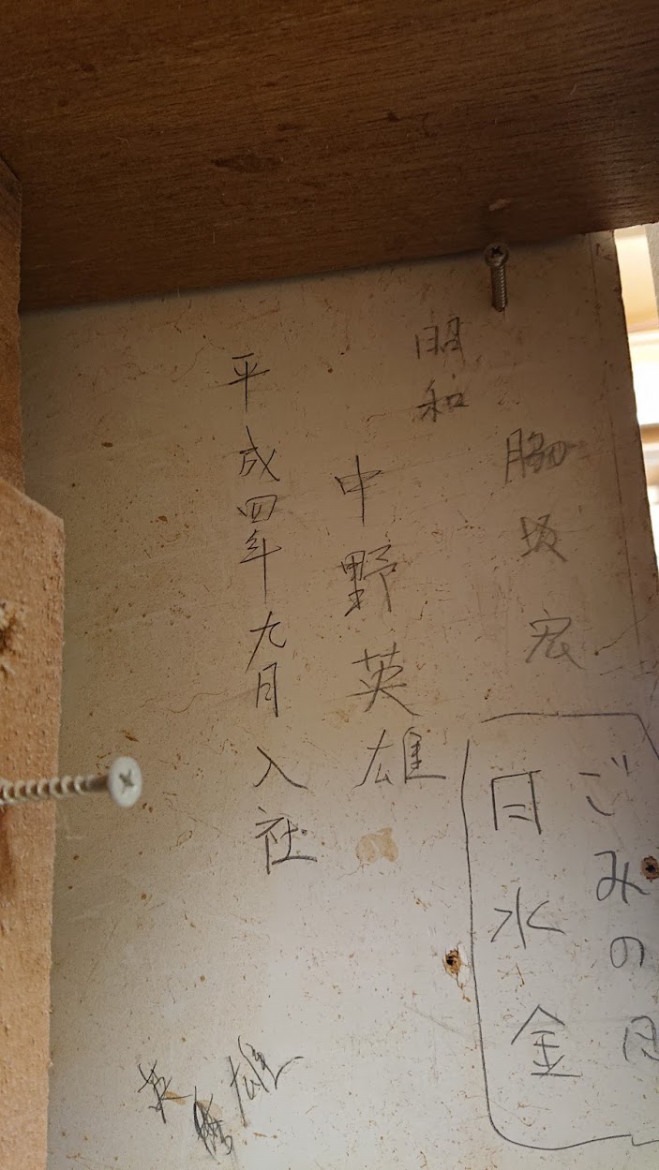 脇坂宏
昭和
中野英雄
平成四年九月入社
ごみの日
日水金
英雄